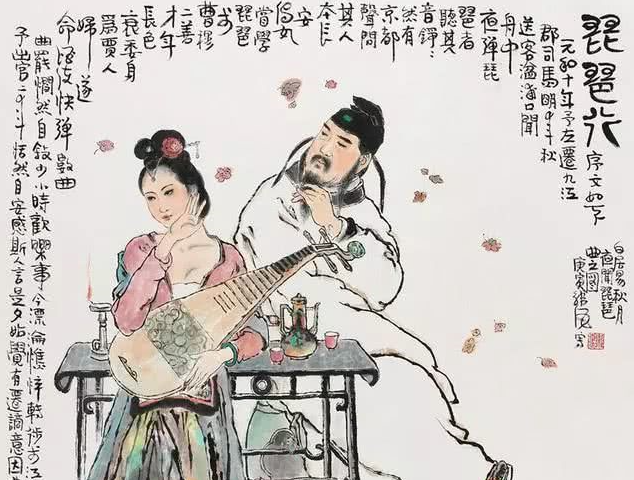 琵琶行 序文如下
元和十年予左遷九江
郡司馬明年秋
送客湓浦口聞
舟中
夜彈琵
琶者
聽其
音錚
然有
京都
聲問
其人
本長
安
倡女
嘗學
琵琶
於
曹穆
二善
才年
長色
衰委身
為賈人
婦遂
命酒使快彈數曲
曲罷憫然自敘少小時歡樂事今漂淪憔悴轉徙於江
予出官二年恬然自安感斯人言是夕始覺有遷謫意因
白居易秋月
夜聞琵琶
曲之圖
庚寅
寫